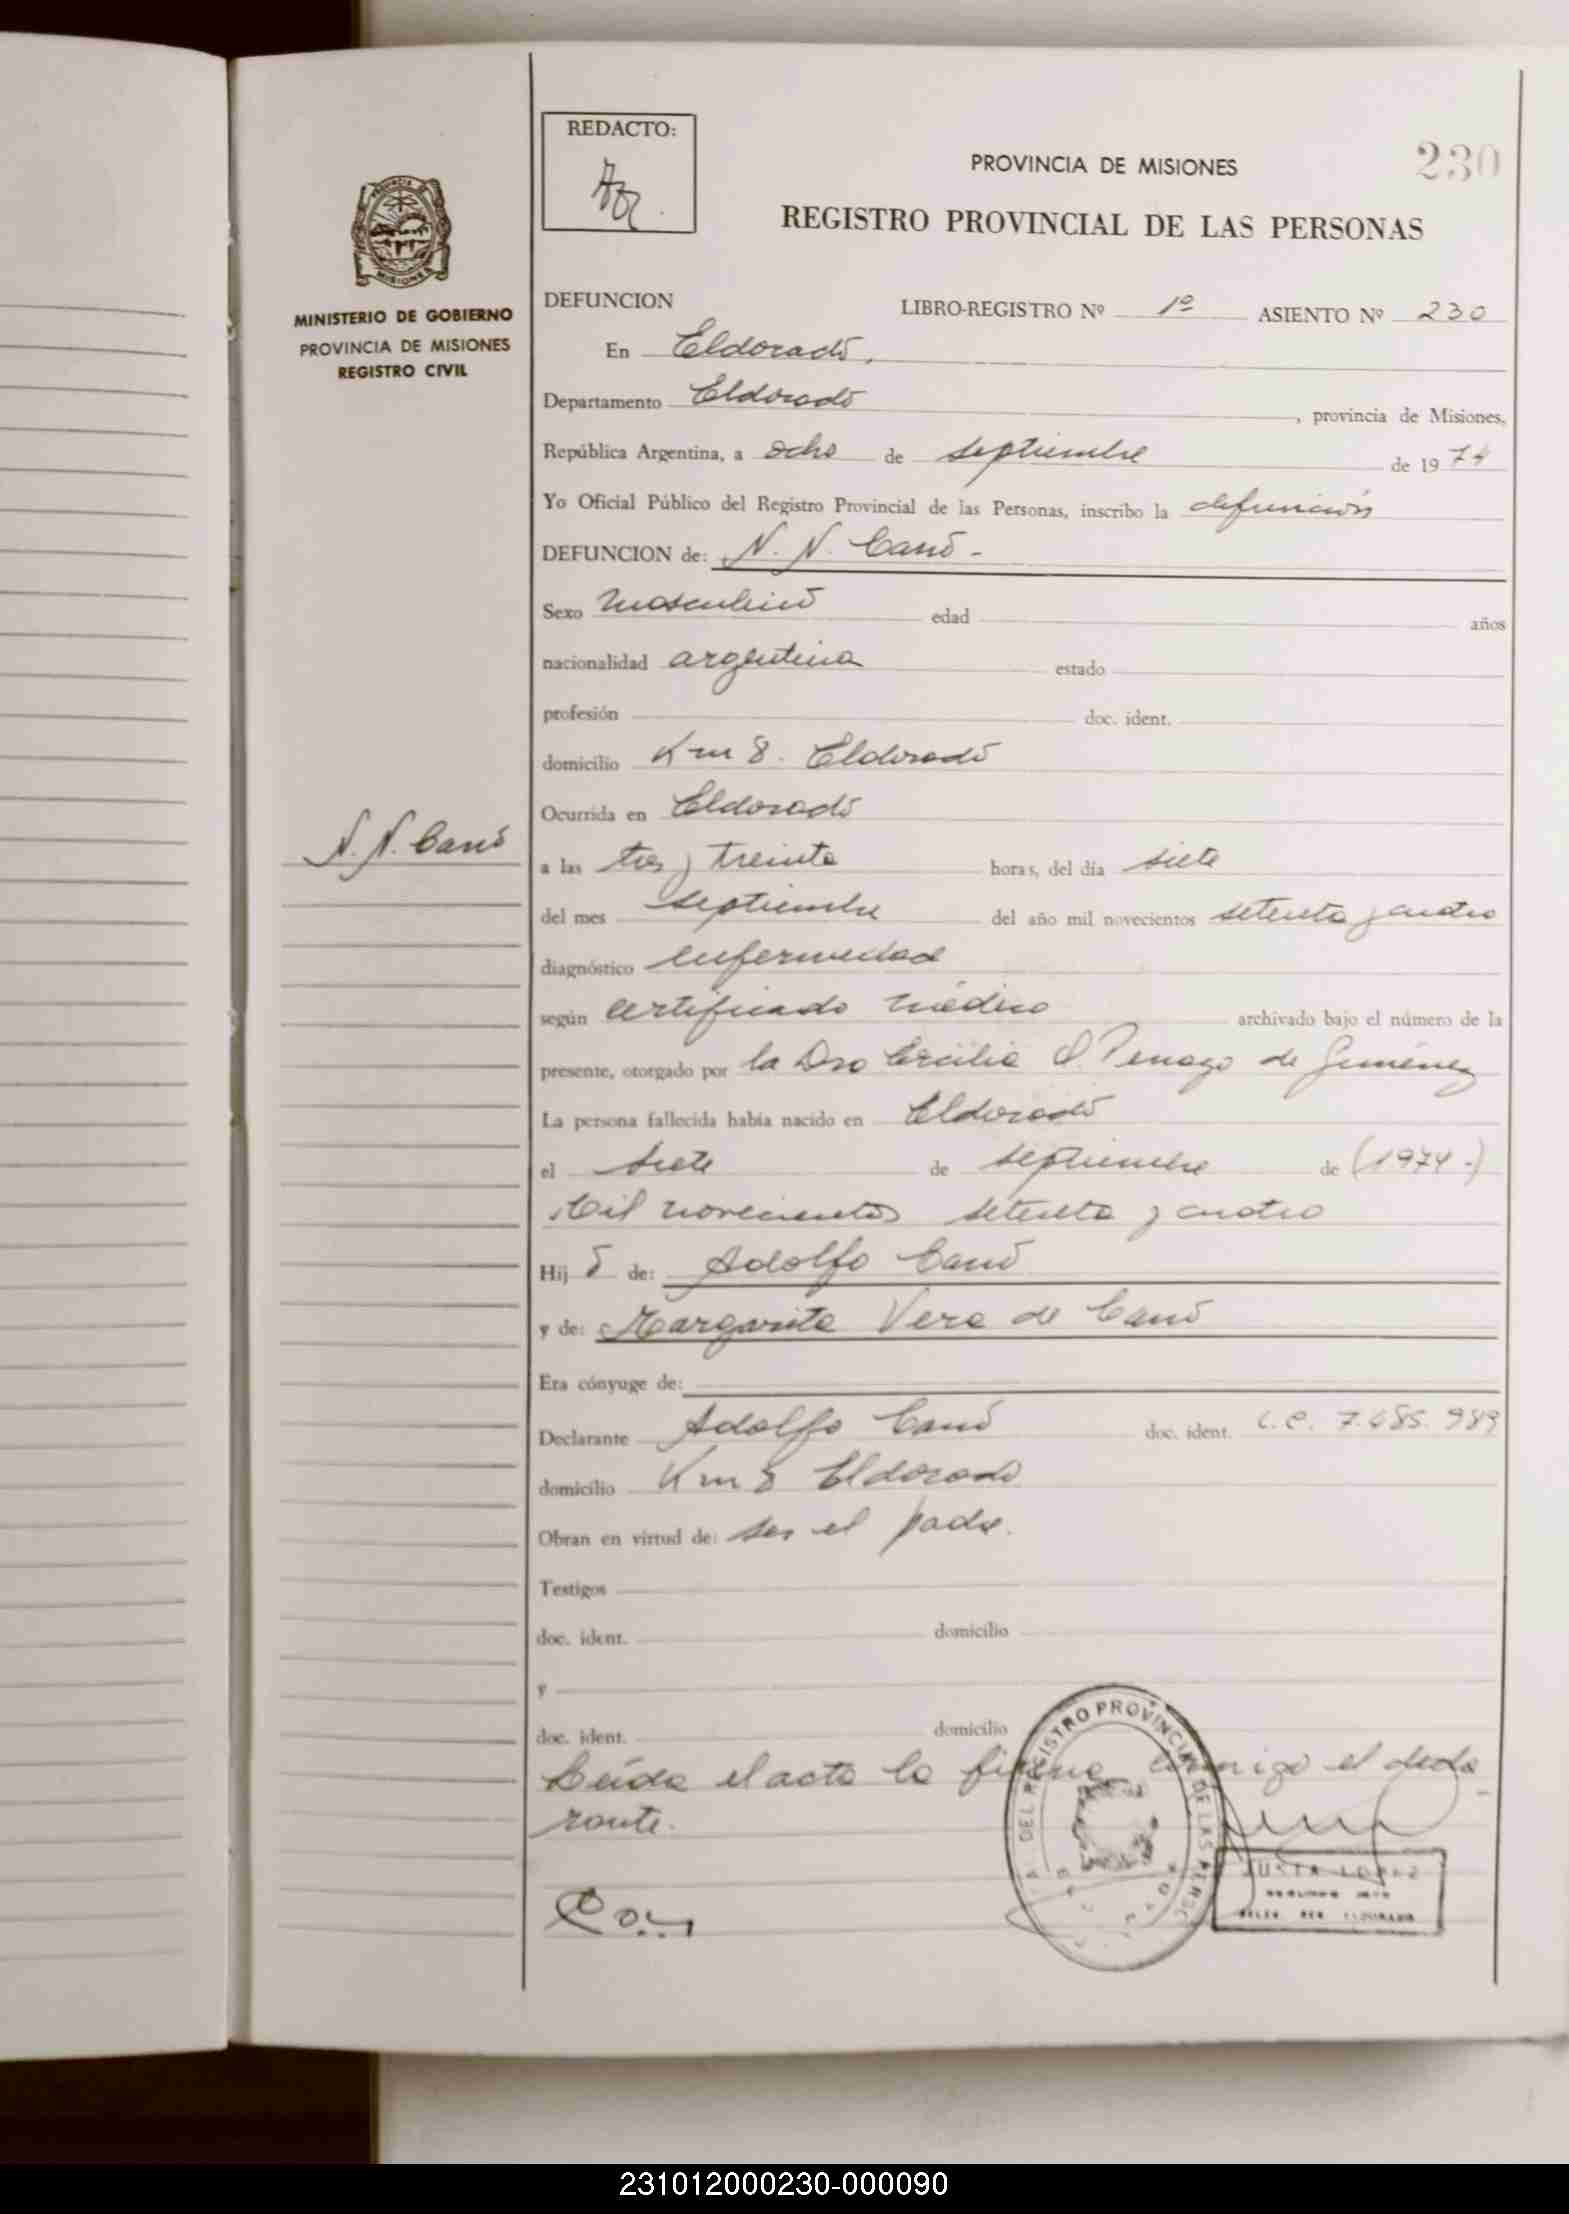 REDACTO:
PROVINCIA DE MISIONES
230
REGISTRO PROVINCIAL DE LAS PERSONAS
PROVINCIA DE
MISIONES
MINISTERIO DE GOBIERNO
PROVINCIA DE MISIONES
REGISTRO CIVIL
DEFUNCION LIBRO-REGISTRO Nº 1º ASIENTO Nº 230
En Eldorado,
Departamento Eldorado, provincia de Misiones,
República Argentina, a ocho de septiembre de 1974
Yo Oficial Público del Registro Provincial de las Personas, inscribo la defunción
DEFUNCION de: N. N. Cano -
Sexo masculino edad años
nacionalidad argentina estado
profesión doc. ident.
domicilio Km 8. Eldorado
Ocurrida en Eldorado
N. N. Cano
a las tres y treinta horas, del día siete
del mes septiembre del año mil novecientos setenta y cuatro
diagnóstico enfermedad
según certificado médico archivado bajo el número de la
presente, otorgado por la Dra Cecilia de Jiménez
La persona fallecida había nacido en Eldorado
el siete de septiembre de (1974.-)
Mil novecientos setenta y cuatro
Hijo de: Adolfo Cano
y de: Margarita Vera de Cano
Era cónyuge de:
Declarante Adolfo Cano doc. ident. L.E. 7.485.989
domicilio Km 8 Eldorado
Obran en virtud de: ser el padre.
Testigos
doc. ident. domicilio
y
doc. ident. domicilio
Leída el acta la firma conmigo el decla-
rante.
DEL REGISTRO PROVINCIAL DE LAS PERSO
JUSTA LOPEZ
ELDORADO
231012000230-000090